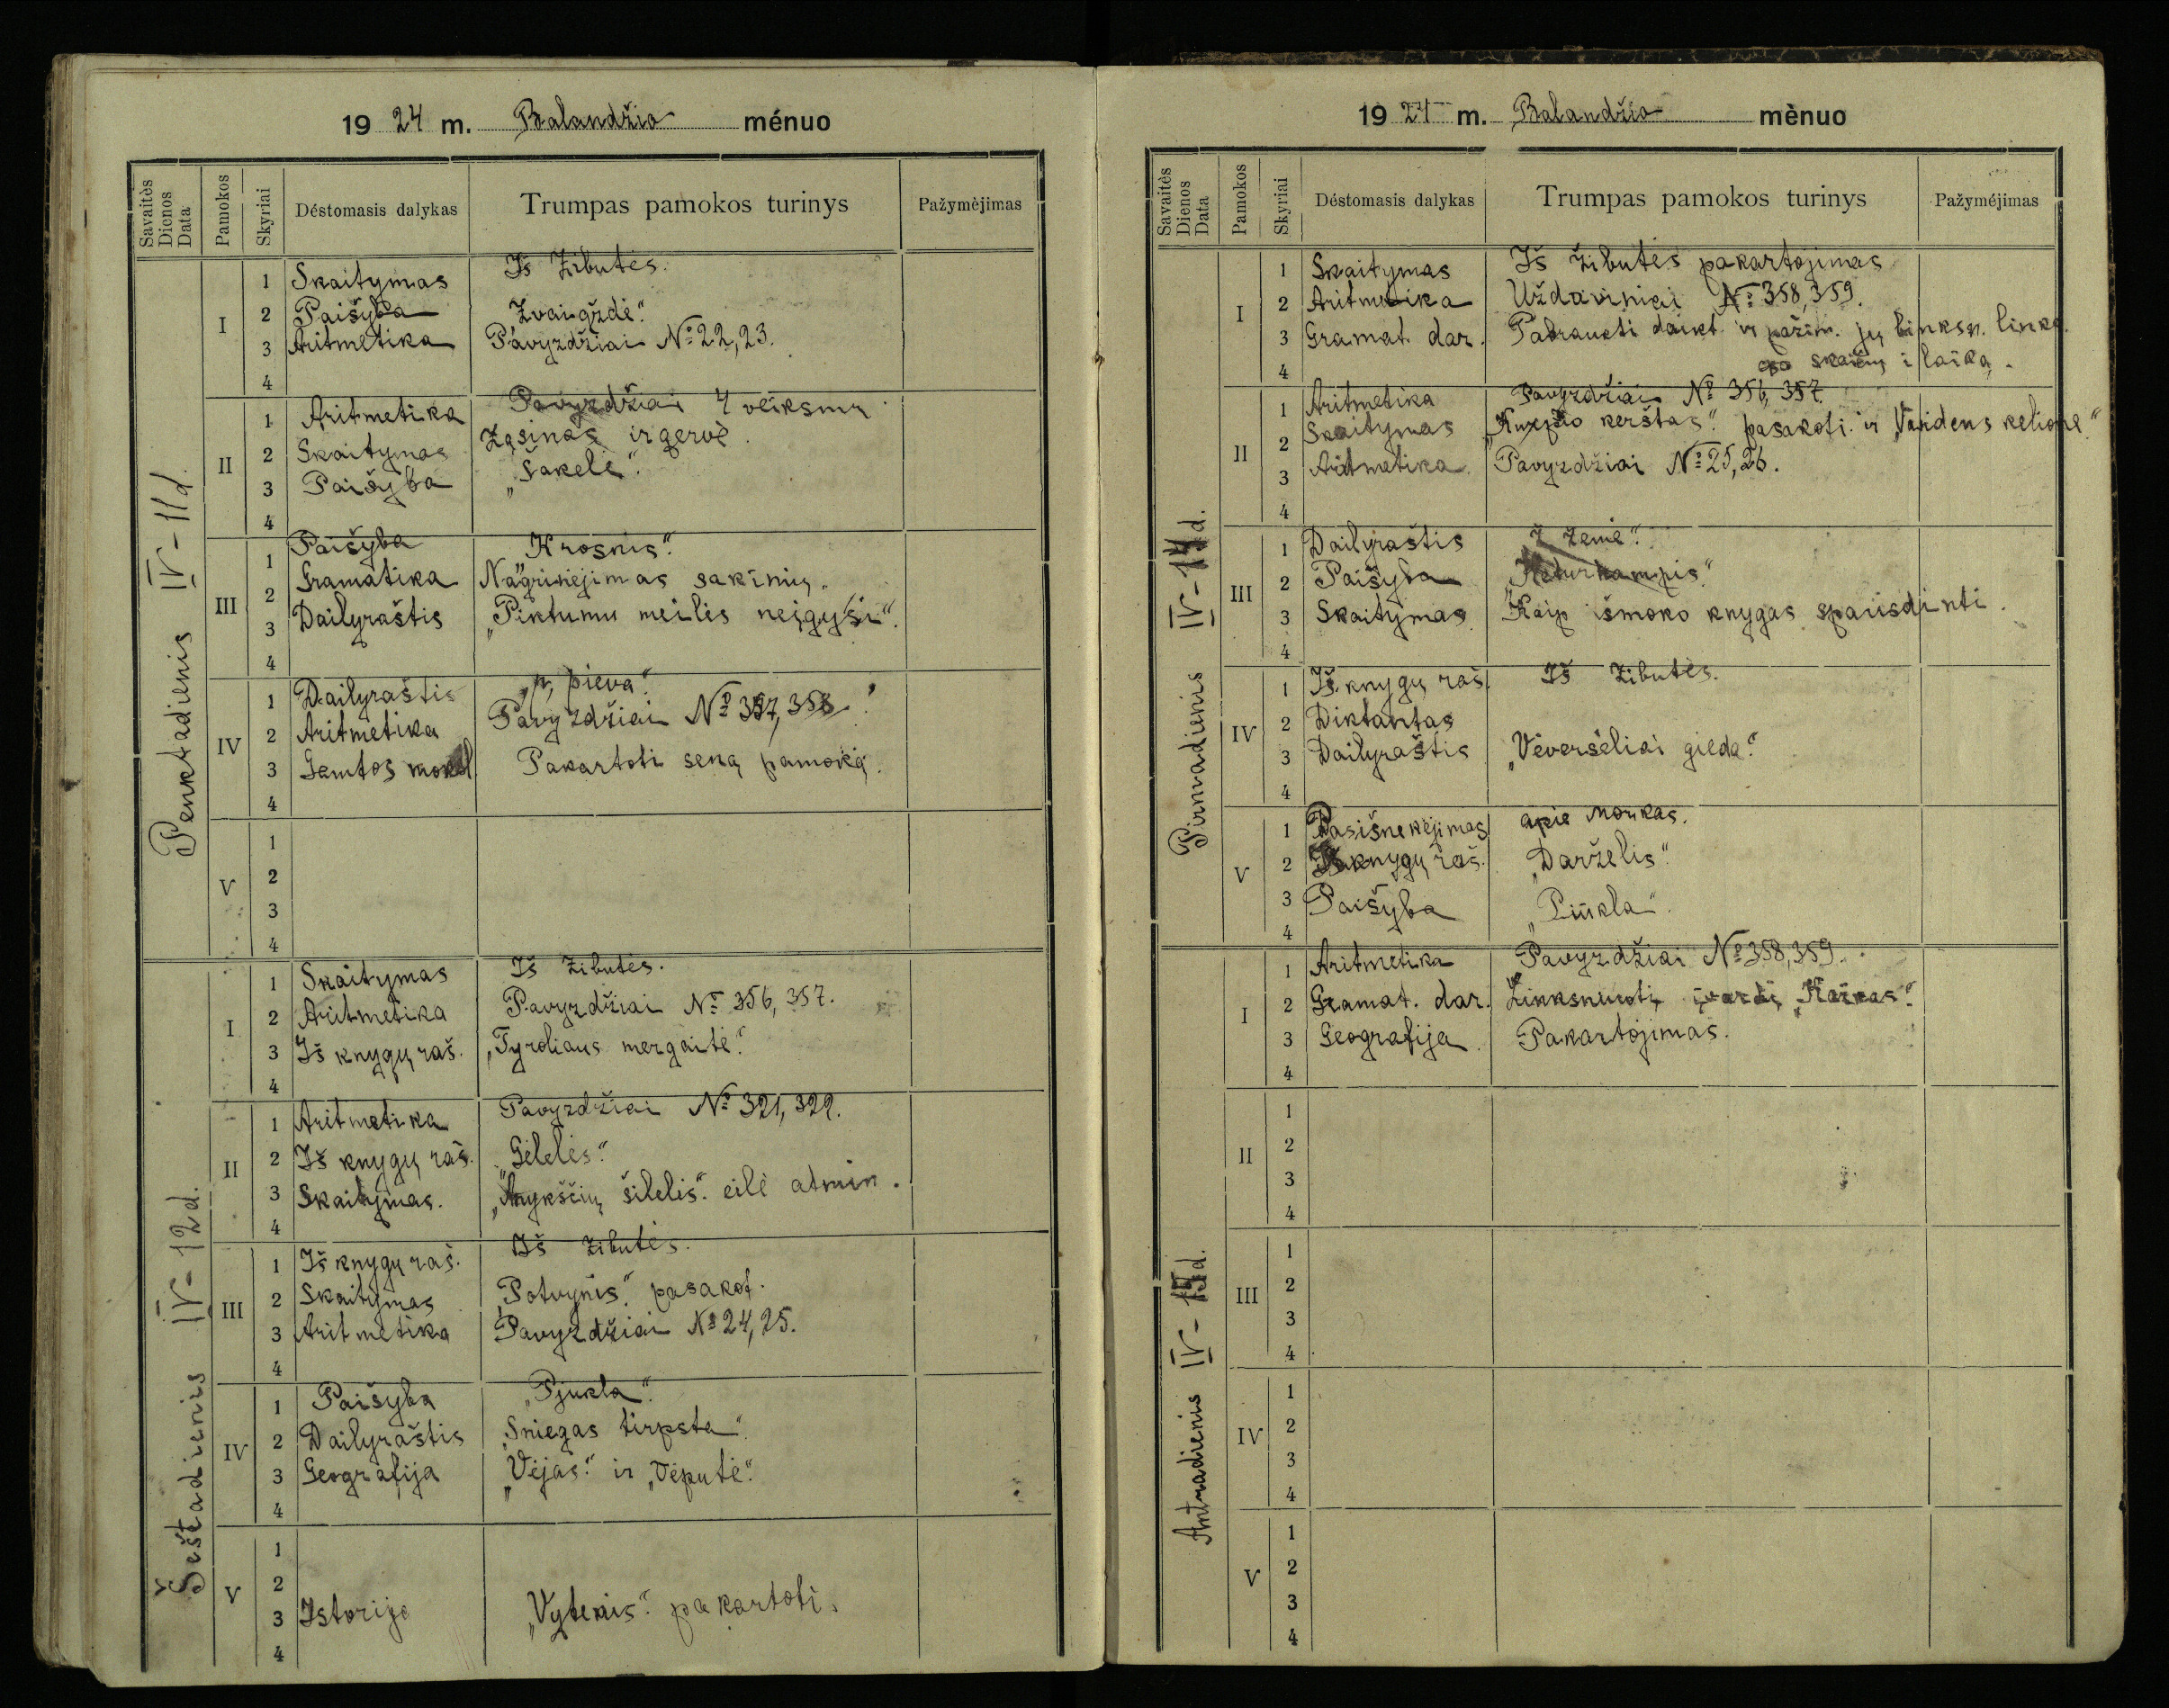 19 24 m. Balandžio ménuo
Savaitės Dienos Data Pamokos Skyriai Déstomasis dalykas Trumpas pamokos turinys Pažymėjimas
Penktadienis IV-11 d.
I
1 Skaitymas Iš Žibutės.
2 Paišyba Žvaigždė."
3 Aritmetika Pavyzdžiai № 22, 23.
4
II
1 Aritmetika Pavyzdžiai 4 veiksmų.
2 Skaitymas Žąsinas ir gervė.
3 Paišyba „Šakelė".
4
III
1 Paišyba „Krosnis".
2 Gramatika Nagrinėjimas sakinių.
3 Dailyraštis „Piktumu meilės neįgysi".
4
IV
1 Dailyraštis „p, pieva".
2 Aritmetika Pavyzdžiai № 357, 358.
3 Gamtos moksl. Pakartoti seną pamoką.
4
V
1
2
3
4
Šeštadienis IV-12 d.
I
1 Skaitymas Iš Žibutės.
2 Aritmetika Pavyzdžiai № 356, 357.
3 Iš knygų raš. „Tyroliaus mergaitė".
4
II
1 Aritmetika Pavyzdžiai № 321, 322.
2 Iš knygų raš. „Gėlelės".
3 Skaitymas. „Anykščių šilelis". eilė atmin.
4
III
1 Iš knygų raš. Iš Žibutės.
2 Skaitymas „Potvynis". pasakot.
3 Aritmetika Pavyzdžiai № 24, 25.
4
IV
1 Paišyba „Pjukla".
2 Dailyraštis „Sniegas tirpsta".
3 Geografija „Vėjas." ir „Vėputė".
4
V
1
2
3 Istorija „Vytenis". pakartoti.
4
19 24 m. Balandžio mėnuo
Savaitės Dienos Data Pamokos Skyriai Déstomasis dalykas Trumpas pamokos turinys Pažyméjimas
Pirmadienis IV-14 d.
I
1 Skaitymas Iš Žibutės pakartojimas
2 Aritmetika Uždaviniai № 358, 359.
3 Gramat. dar. Pabraukti daikt. ir pažim. jų linksn. links.
4 skaičių i laiką.
II
1 Aritmetika Pavyzdžiai № 356, 357.
2 Skaitymas „Kurpio kerštas". pasakoti ir „Vandens kelionė."
3 Aritmetika Pavyzdžiai № 25, 26.
4
III
1 Dailyraštis Ž žemė".
2 Paišyba „Keturkampis".
3 Skaitymas „Kaip išmoko knygas spausdinti.
4
IV
1 Iš knygų raš. Iš Žibutės.
2 Diktantas
3 Dailyraštis „Vėversėliai gieda".
4
V
1 Pasišnekėjimas apie morkas.
2 Iš knygų raš. „Darželis".
3 Paišyba „Piūkla".
4
Antradienis IV-15 d.
I
1 Aritmetika Pavyzdžiai № 358, 359.
2 Gramat. dar. Linksniuoti įvardį „Kaikas".
3 Geografija Pakartojimas.
4
II
1
2
3
4
III
1
2
3
4
IV
1
2
3
4
V
1
2
3
4